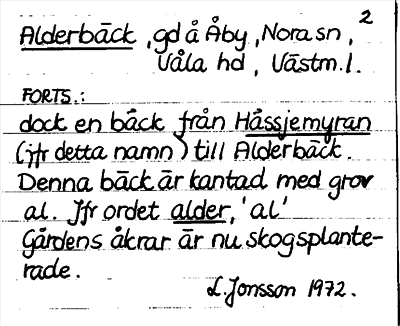 2
Alderbäck, gd å Åby, Nora sn,
Våla hd, Västm.l.
FORTS.:
dock en bäck från Håssjemyran
(jfr detta namn) till Alderbäck.
Denna bäck är kantad med grov
al. Jfr ordet alder, 'al'
Gårdens åkrar är nu skogsplante-
rade.
L. Jonsson 1972.